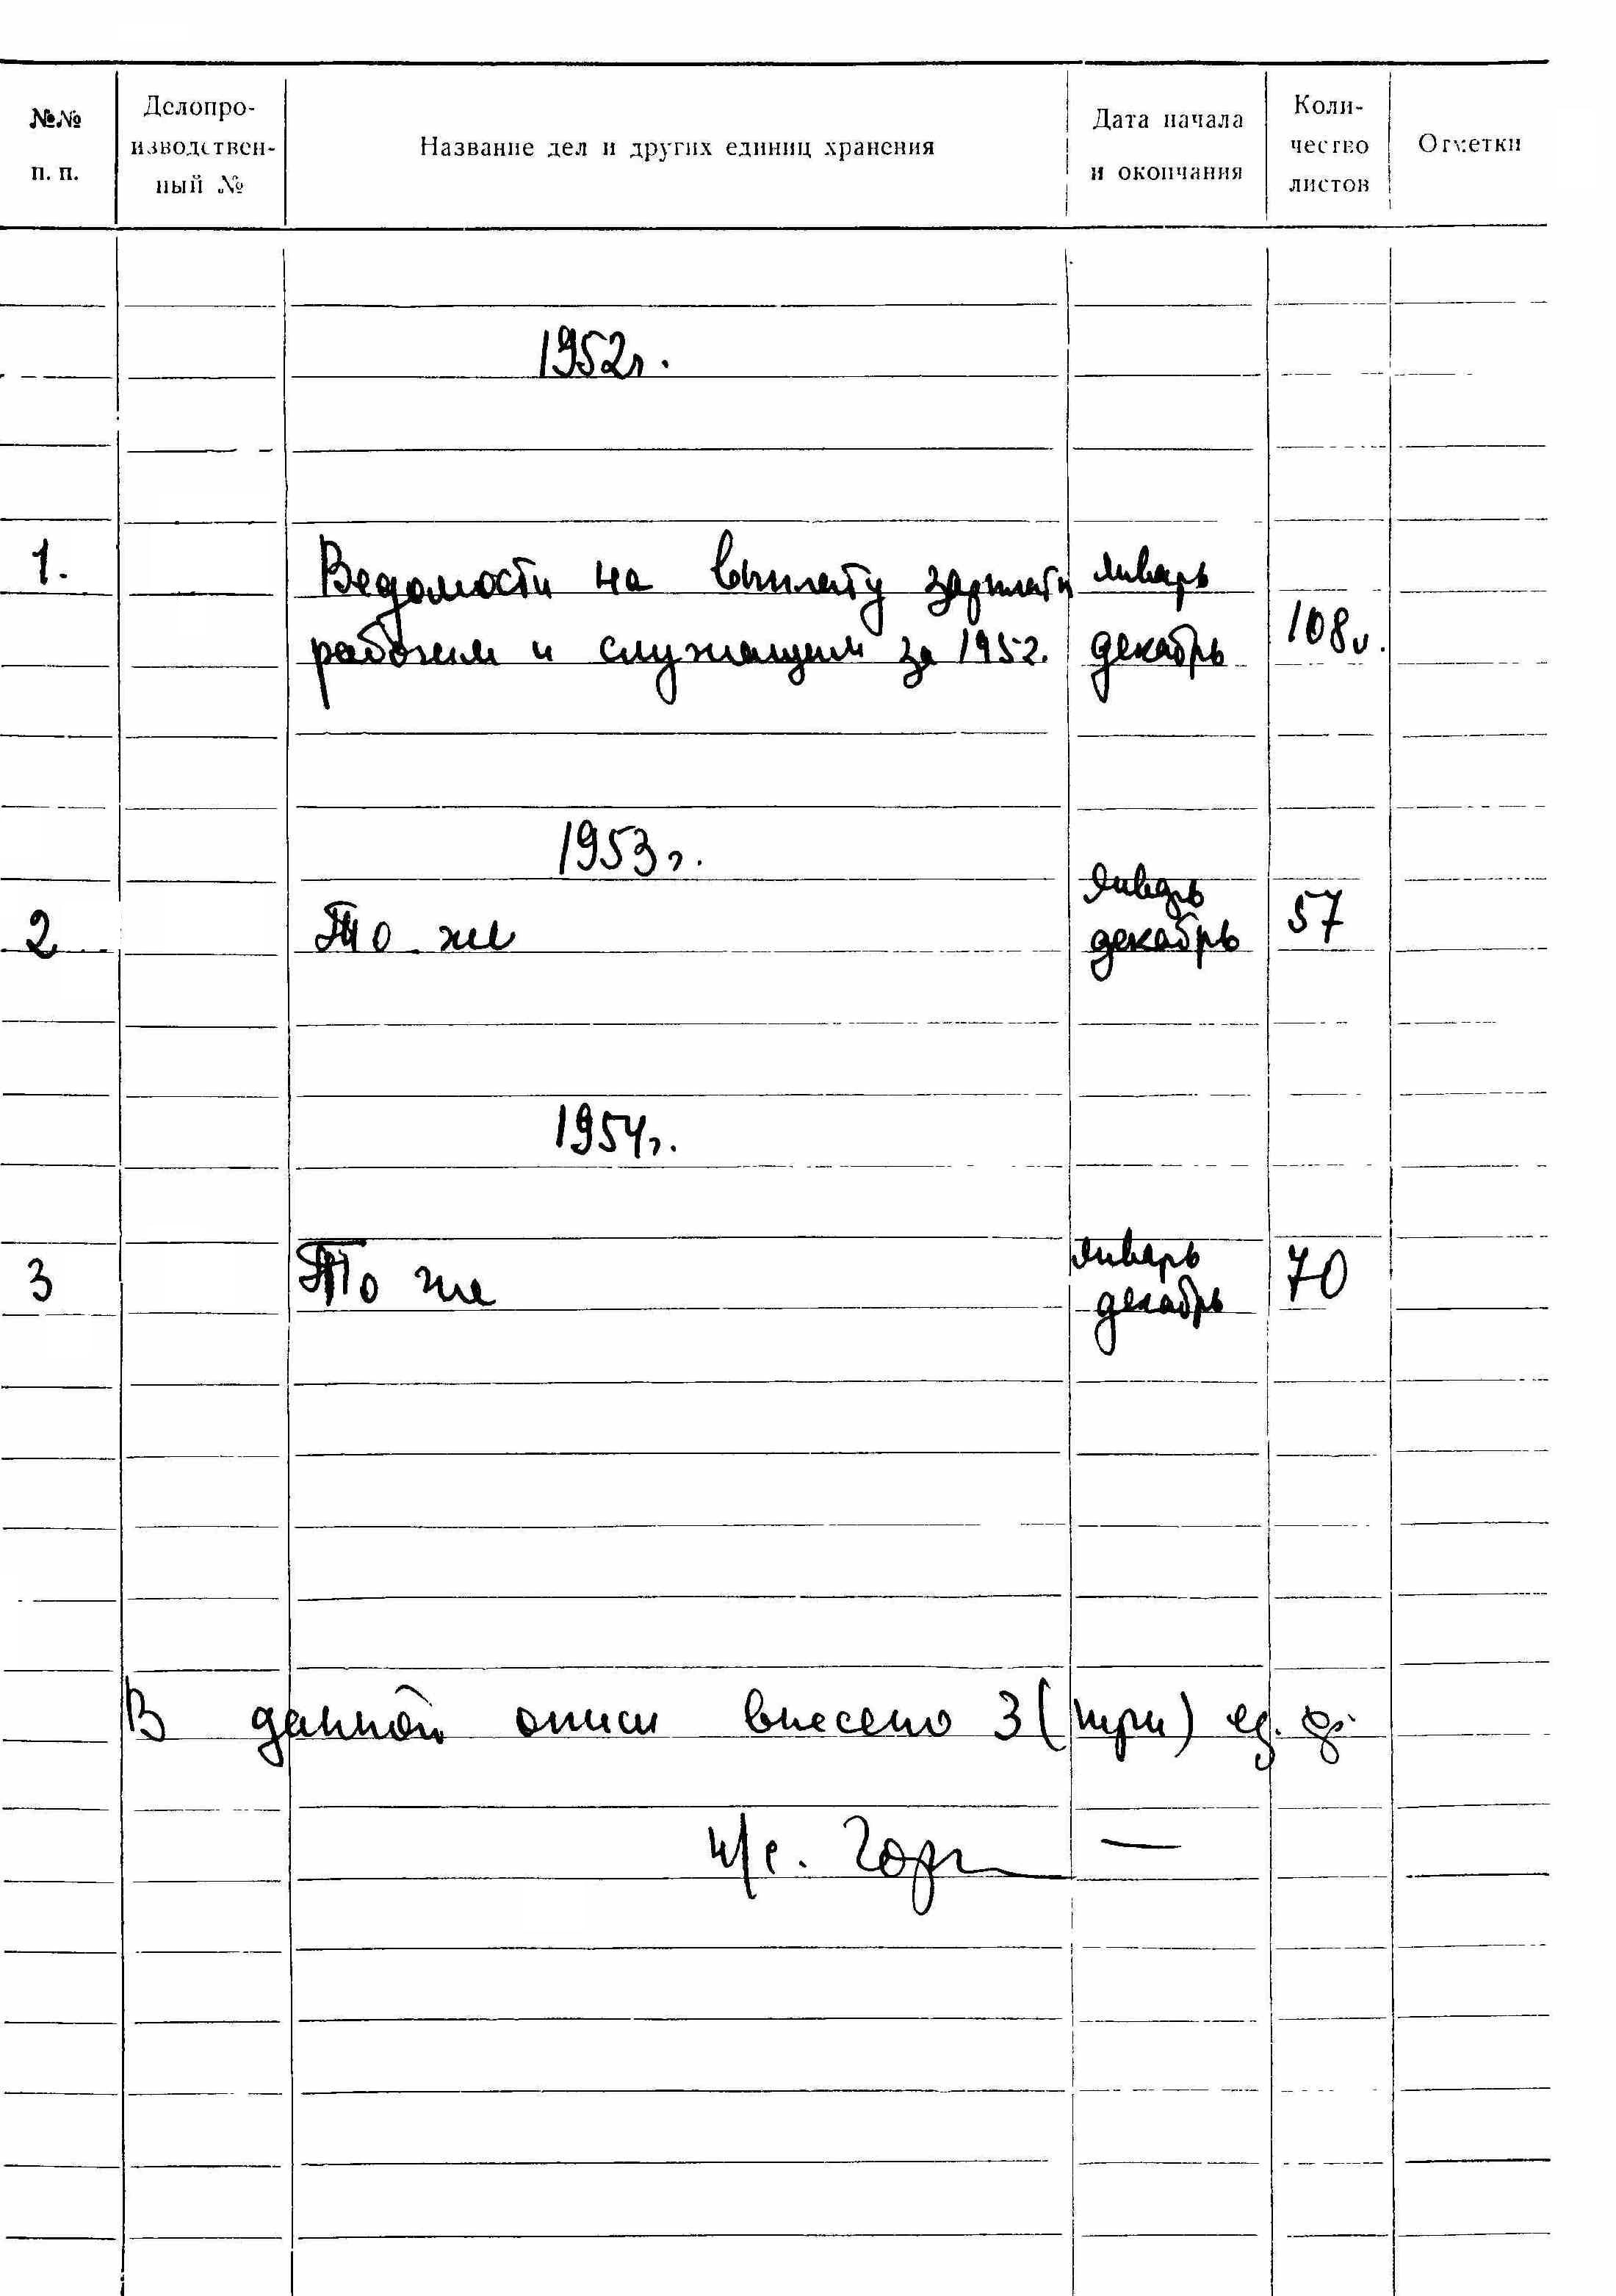 №№ п. п.
Делопро-
изводствен-
ный №
Название дел и других единиц хранения
Дата начала
и окончания
Коли-
чество
листов
Отметки
1952г.
1. Ведомости на выплату зарплаты январь
рабочим и служащим за 1952. декабрь 108л.
1953г.
январь
2 То же декабрь 57
1954г.
3 То же январь 70
декабрь
В данной описи внесено 3 (три) ед. хр.